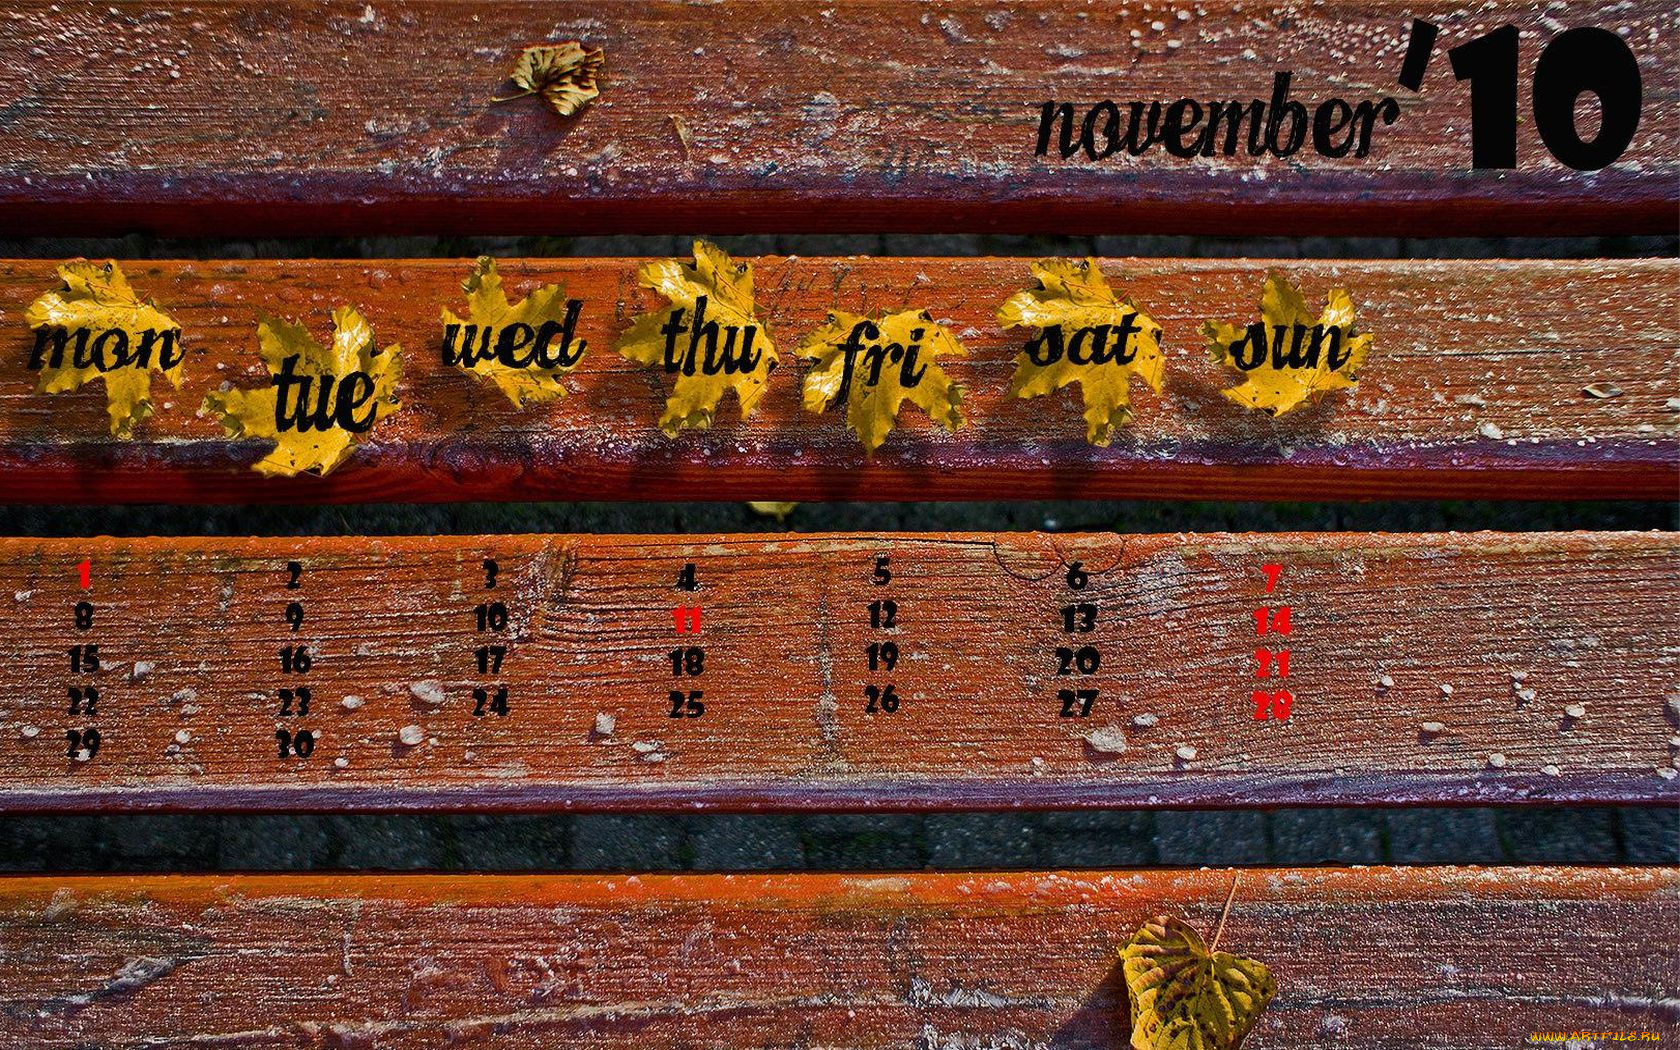 november '10
mon tue wed thu fri sat sun
1 2 3 4 5 6 7
8 9 10 11 12 13 14
15 16 17 18 19 20 21
22 23 24 25 26 27 28
29 30
www.ARTFILE.RU